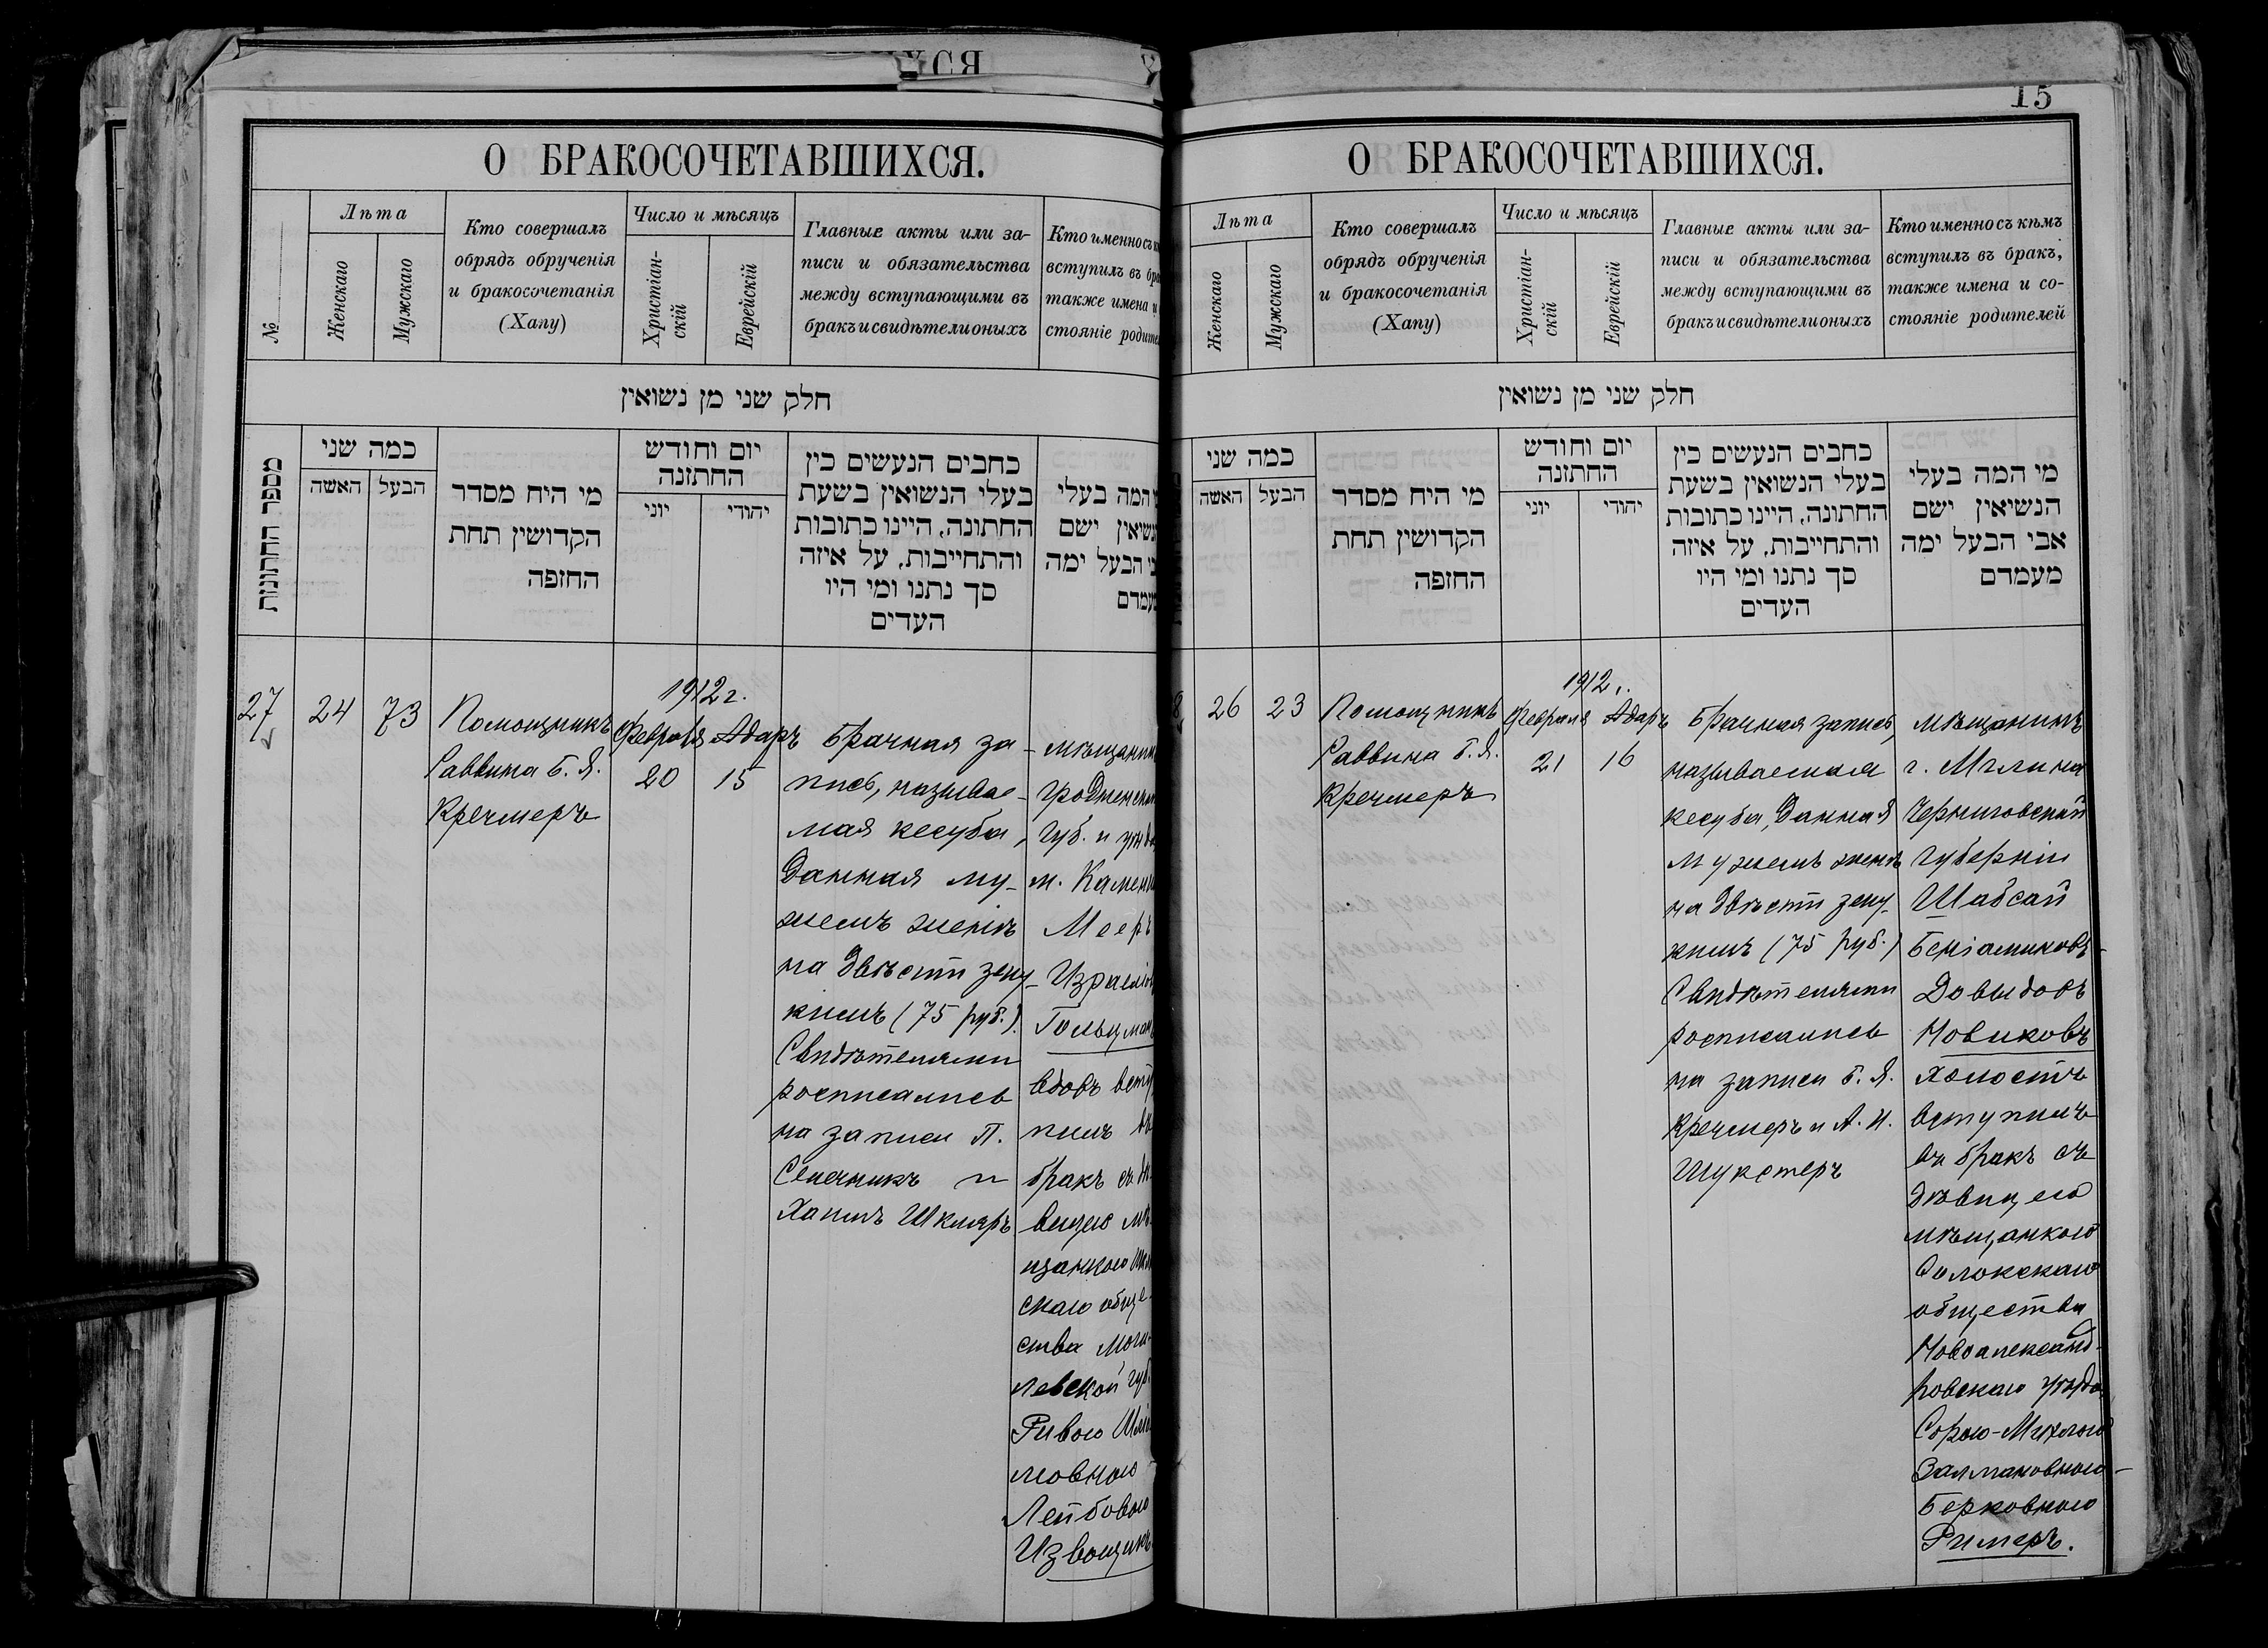 15
О БРАКОСОЧЕТАВШИХСЯ.
№
Лѣта
Женскаго
Мужскаго
Кто совершалъ
обрядъ обрученія
и бракосочетанія
(Хапу)
Число и мѣсяцъ
Христіан-
скій
Еврейскій
Главные акты или за-
писи и обязательства
между вступающими въ
бракъ и свидѣтели оныхъ
Кто именно съ
вступилъ въ
также имена
стояніе
חלק שני מן נשואין
מספר החתונות
כמה שני
האשה
הבעל
מי היח מסדר
הקדושין תחת
החופה
יום וחודש
החתונה
יוני
יהודי
כתבים הנעשים בין
בעלי הנשואין בשעת
החתונה, היינו כתובות
והתחייבות, על איזה
סך נתנו ומי היו
העדים
המה בעלי
ישם
הבעל ימה
27
24
73
Помощникъ
Раввина Б. Я.
Кречмеръ
1912 г.
Февраля
20
Адаръ
15
Брачная за-
пись, называе-
мая кесуба,
данная му-
жемъ женѣ
на двѣсти зеху-
кимъ (75 руб.).
Свидѣтелями
росписались
на записи П.
и
Хаимъ Шкляръ
Гродненской
губ. и
м.
Мееръ
вдовъ всту-
пилъ въ
бракъ съ дѣ-
вицею мѣ-
щанкою
скаго обще-
ства Моги-
левской губ.
Ривою
мовною
Лейбовою
Извощикъ
О БРАКОСОЧЕТАВШИХСЯ.
Лѣта
Женскаго
Мужскаго
Кто совершалъ
обрядъ обрученія
и бракосочетанія
(Хапу)
Число и мѣсяцъ
Христіан-
скій
Еврейскій
Главные акты или за-
писи и обязательства
между вступающими въ
бракъ и свидѣтели оныхъ
Кто именно съ кѣмъ
вступилъ въ бракъ,
также имена и со-
стояніе родителей
חלק שני מן נשואין
כמה שני
האשה
הבעל
מי היח מסדר
הקדושין תחת
החופה
יום וחודש
החתונה
יוני
יהודי
כתבים הנעשים בין
בעלי הנשואין בשעת
החתונה, היינו כתובות
והתחייבות, על איזה
סך נתנו ומי היו
העדים
מי המה בעלי
הנשיאין ישם
אבי הבעל ימה
מעמדם
26
23
Помощникъ
Раввина Б. Я.
Кречмеръ
1912 г.
Февраля
21
Адаръ
16
Брачная запись,
называемая
кесуба, данная
мужемъ женѣ
на двѣсти зеху-
кимъ (75 руб.)
Свидѣтелями
росписались
на записи Б. Я.
Кречмеръ и А. И.
Шукстеръ
Мѣщанинъ
г. Мглина
Черниговской
губерніи
Шабсай
Беніаминовъ-
Довыдовъ
Новиковъ
холостъ
вступилъ
въ бракъ съ
дѣвицею
мѣщанкою
Солокскаго
общества
Новоалександ-
ровскаго уѣзда
Сорою-Михлою
Залмановною-
Берковною
Римеръ.